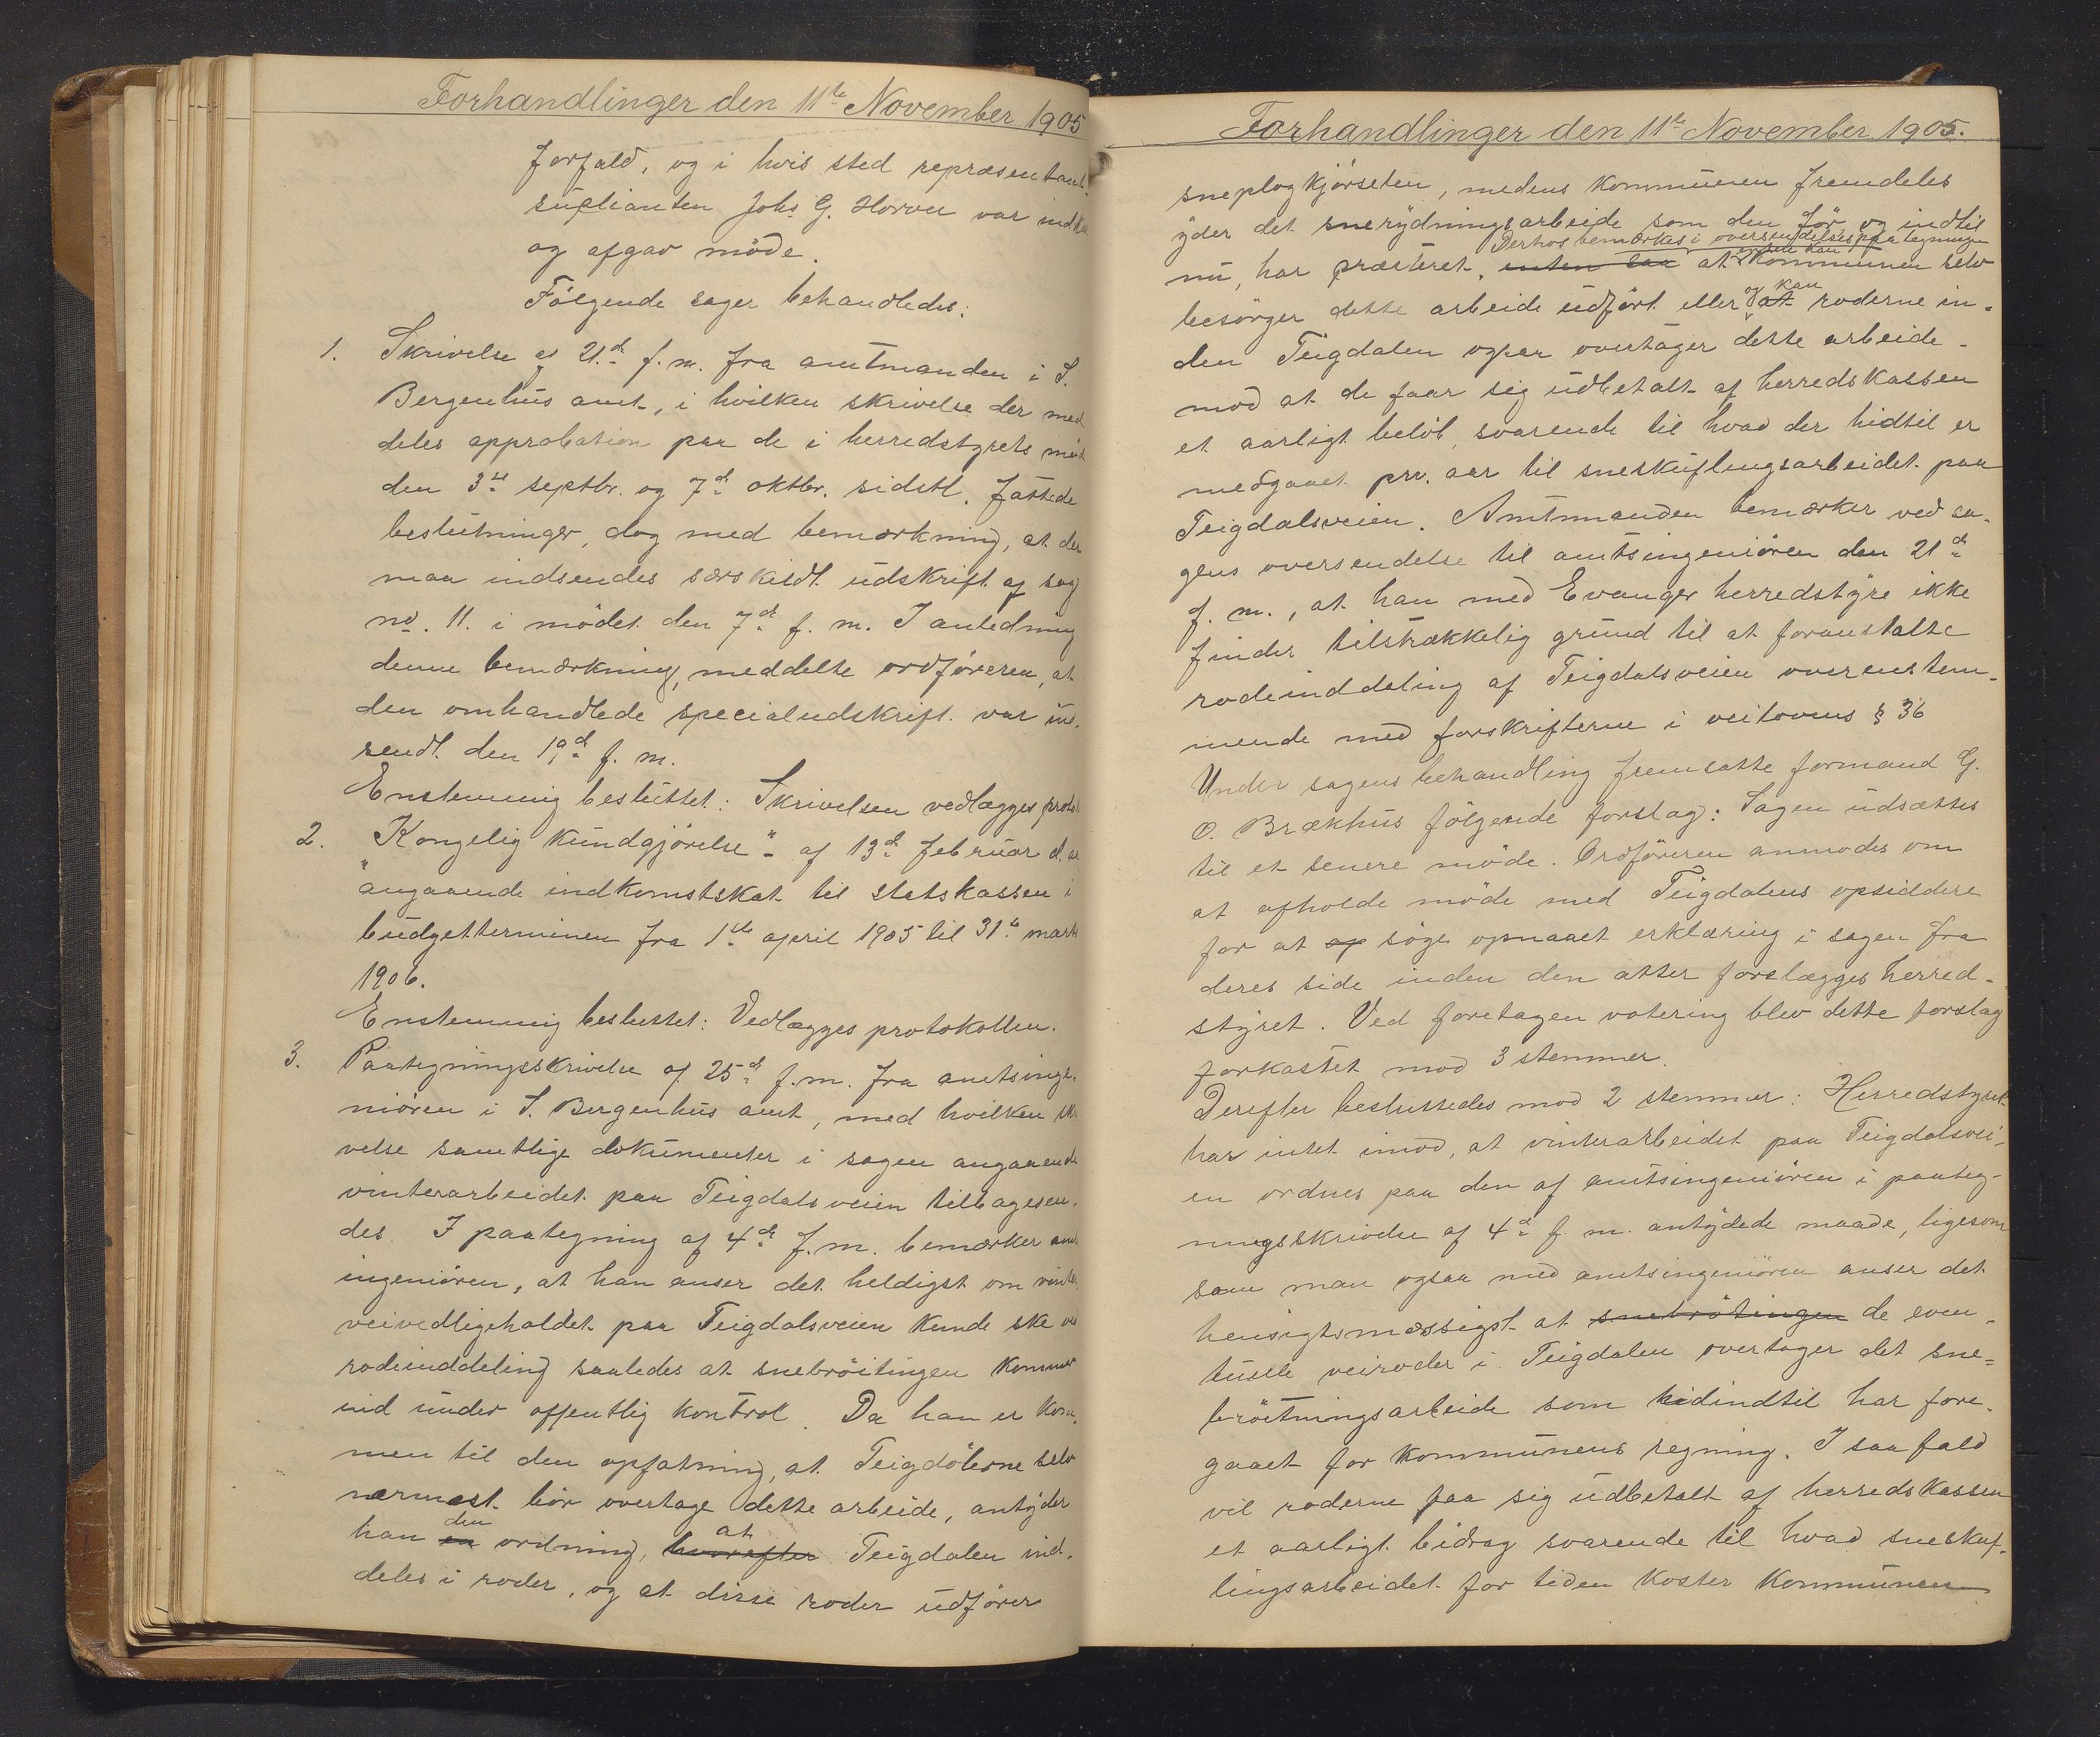 Forhandlinger den 11te November 1905
forfald, og i hvis sted repræsentant-
suplianten Johs G. Horvei var indka
og afgav møde.
Følgende sager behandledes:
1. Skrivelse af 21de f.m. fra amtmanden i S.
Bergenhus amt, i hvilken skrivelse der med
deles approbation paa de i herredstyrets mød
den 3die septbr. og 7de oktbr. sidstl. fattede
beslutninger, dog med bemærkning, at der
maa indsendes særskildt udskrift af sag
no. 11. i mødet den 7de f.m. I anledning
denne bemærkning, meddelte ordføreren, at
den omhandlede specialudskrift var ind-
sendt den 19de f.m.
Enstemmig besluttet: Skrivelsen vedlægges protok
2. "Kongelig kundgjørelse" af 13de februar d.a.
angaaende indkomstskat til statskassen i
budgetterminen fra 1ste april 1905 til 31te marts
1906.
Enstemmig besluttet: Vedlægges protokollen.
3. Paategningsskrivelse af 25de f.m. fra amtsinge-
niøren i S. Bergenhus amt, med hvilken skri
velse samtlige dokumenter i sagen angaaende
vinterarbeidet paa Teigdalsveien tilbagesen-
des. I paategning af 4de f.m. bemærker amts
ingeniøren, at han anser det heldigst om vinter
veivedligeholdet paa Teigdalsveien kunde ske ved
rodeinddeling saaledes at snebrøitingen kommer
ind under offentlig kontrol. Da han er kom-
men til den opfatning, at Teigdølerne selv
nærmest bør overtage dette arbeide, antyder
han en den ordning, hvorefter at Teigdalen ind-
deles i roder, og at disse roder udfører
Forhandlinger den 11te November 1905.
sneplogkjørselen, medens kommunen fremdeles
yder det snerydningsarbeide som den før og indtil
Derhos bemærkes i oversendelsespaategningen
nu, har præsteret, enten saa at enten kan kommunen selv
besørger dette arbeide udført eller og at kan roderne in-
den Teigdalen ogsaa overtager dette arbeide
mod at de faar sig udbetalt af herredskassen
et aarligt beløb, svarende til hvad der hidtil er
medgaaet prv. aar til sneskuflingsarbeidet paa
Teigdalsveien. Amtmanden bemærker ved sa-
gens oversendelse til amtsingeniøren den 21de
f.m., at han med Evanger herredstyre ikke
finder tilstrækkelig grund til at foranstalte
rodeinddeling af Teigdalsveien overenstem-
mende med forskrifterne i veilovens § 36
Under sagens behandling fremsatte formand G.
O. Brækhus følgende forslag: Sagen udsættes
til et senere møde. Ordføreren anmodes om
at afholde møde med Teigdalens opsiddere
for at op søge opnaaet erklæring i sagen fra
deres side inden den atter forelægges herred-
styret. Ved foretagen votering blev dette forslag
forkastet mod 3 stemmer.
Derefter besluttedes mod 2 stemmer: Herredstyret
har intet imod, at vinterarbeidet paa Teigdalsvei-
en ordnes paa den af amtsingeniøren i paateg-
ningsskrivelse af 4de f.m. antydede maade, ligesom
som man ogsaa med amtsingeniøren anser det
hensigtsmæssigst at snebrøtingen de even-
tuelle veiroder i Teigdalen overtager det sne=
brøitningsarbeide som hidindtil har fore-
gaaet for kommunens regning. I saa fald
vil roderne faa sig udbetalt af herredskassen
et aarligt bidrag svarende til hvad sneskuf-
lingsarbeidet for tiden koster kommunen